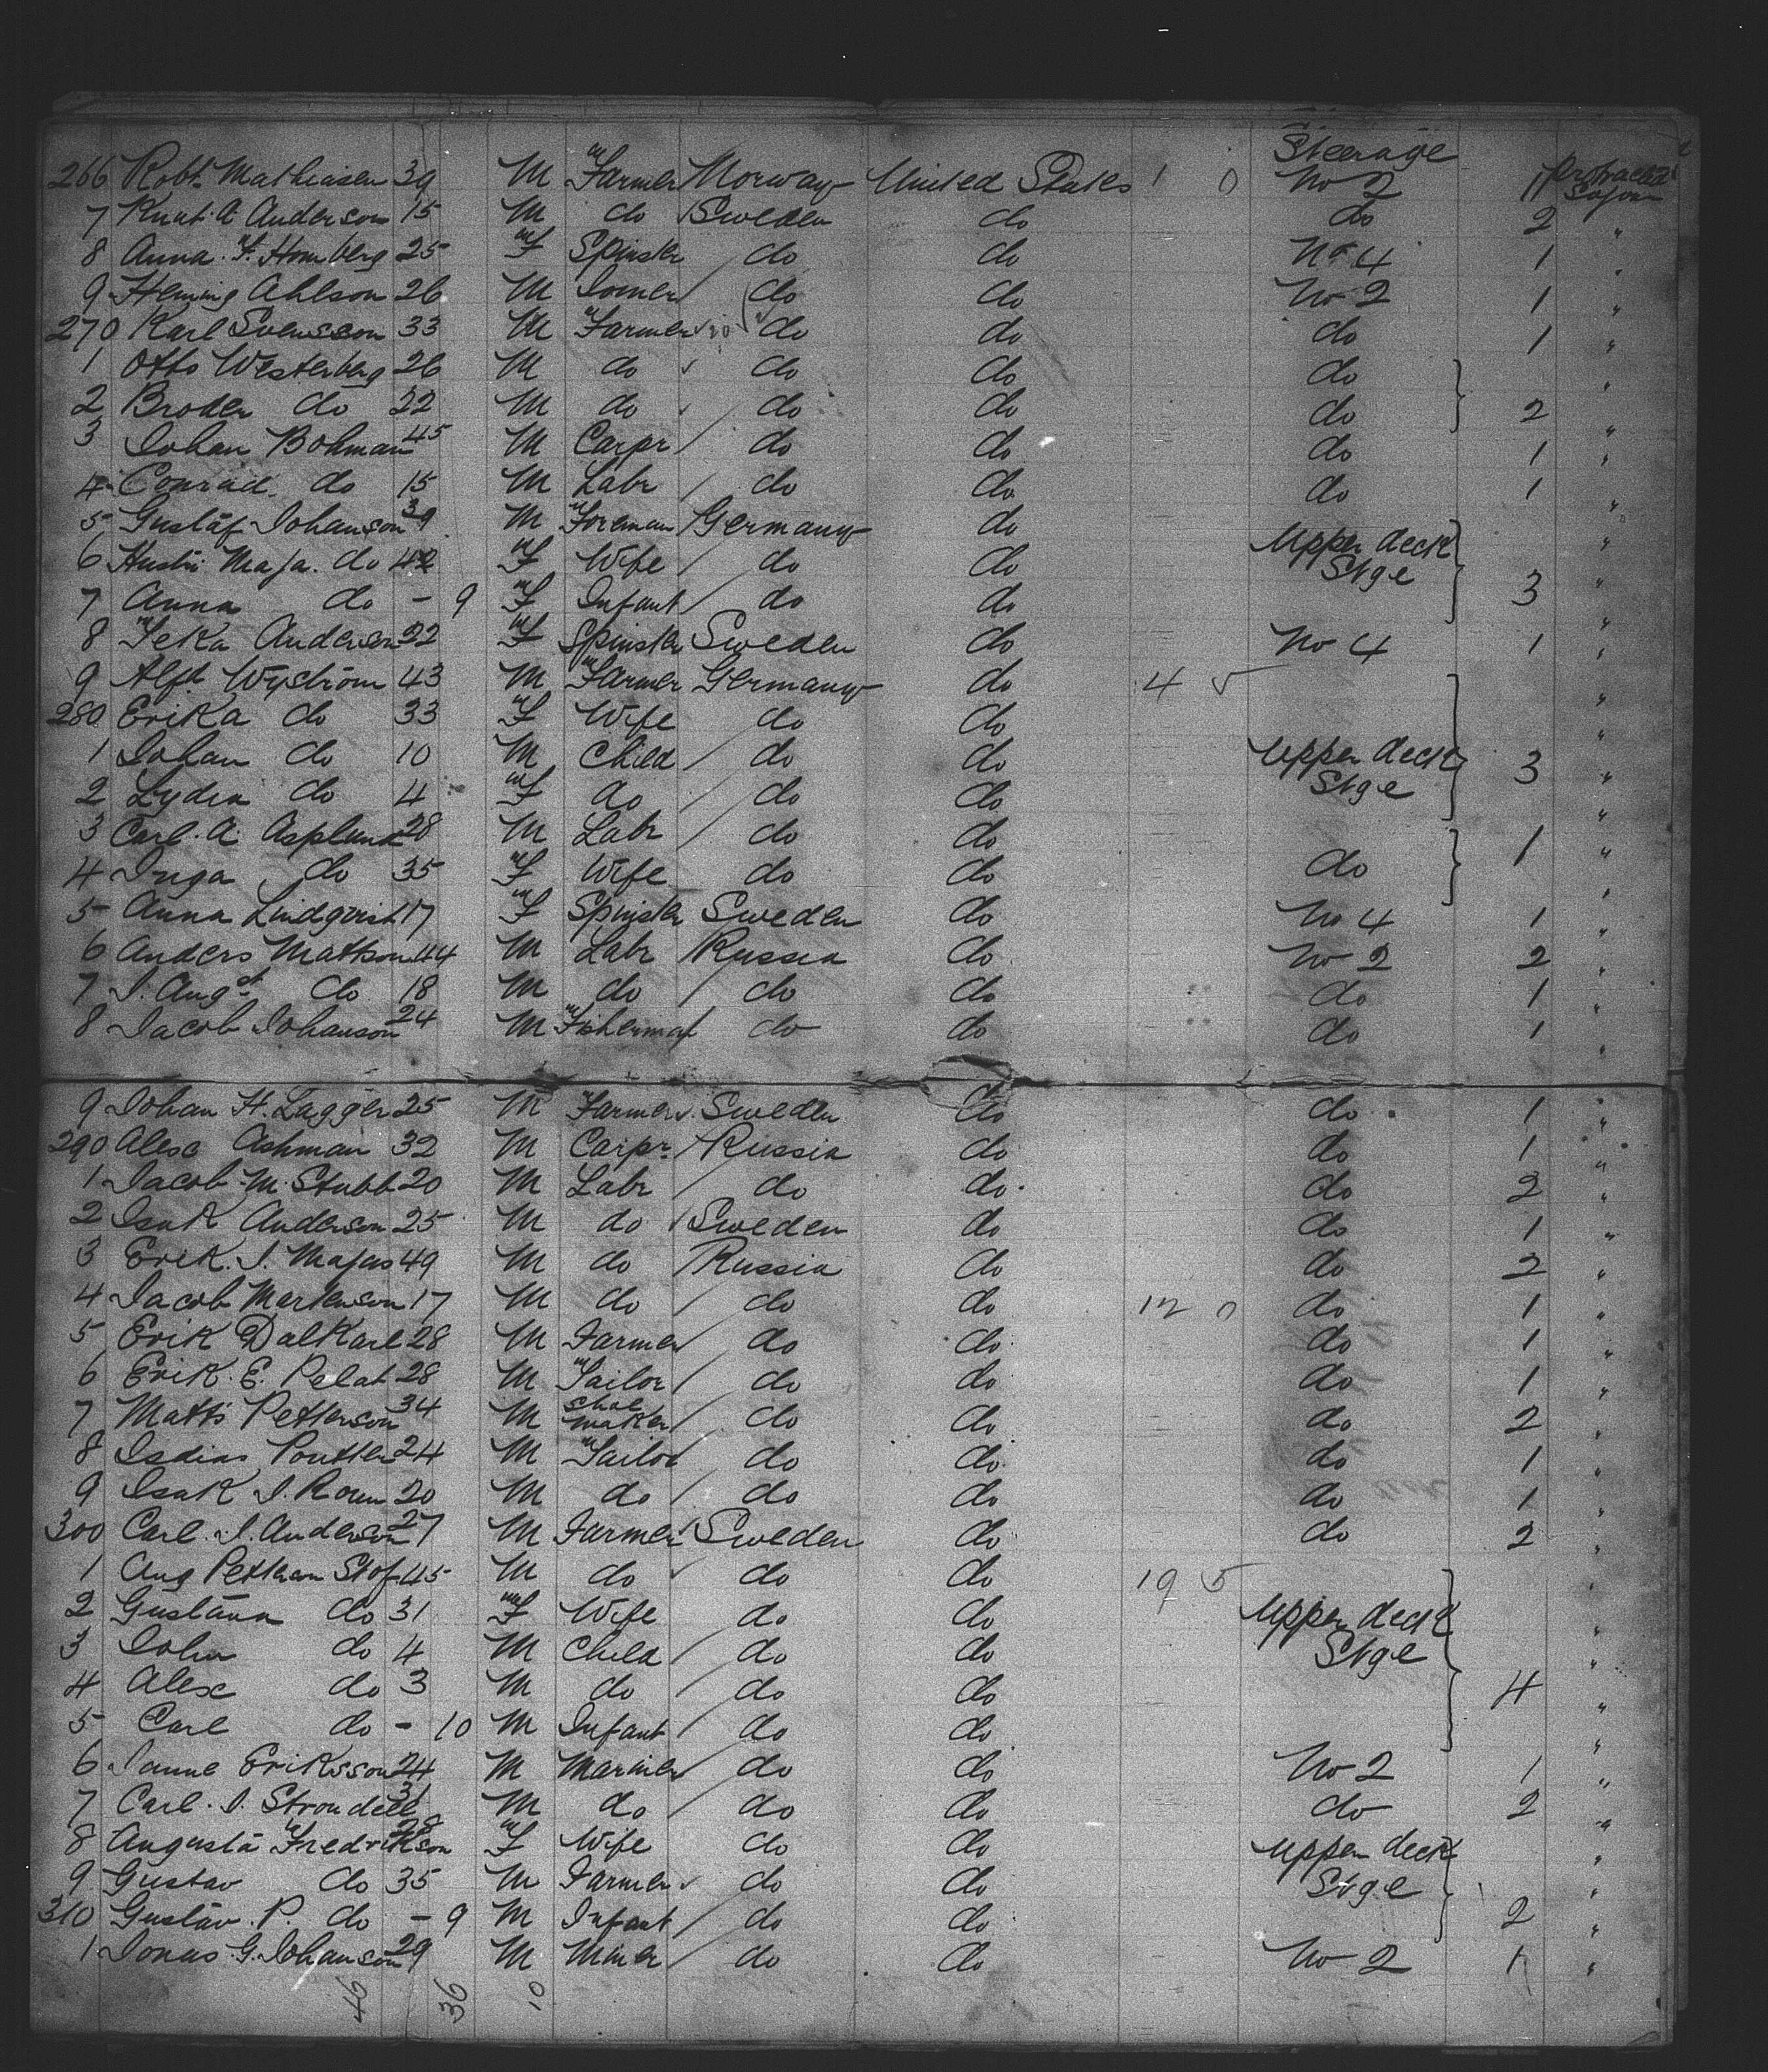 Steerage
266 Robt. Mathiasen 39 M Farmer Norway United States 1 0 No 2 1 Protracted Sojourn
7 Knut A Anderson 15 M do Sweden do do 2 "
8 Anna F. Homberg 25 F Spinster do do No 4 1 "
9 Heming Ahlson 26 M do do No 2 1 "
270 Karl Svensson 33 M Farmer do do do 1 "
1 Otto Westerberg 26 M do do do do "
2 Broder do 22 M do do do do 2 "
3 Johan Bohman 45 M Carpr do do do 1 "
4 Conrad do 15 M Labr do do do 1 "
5 Gustaf Johanson 39 M Foreman Germany do "
6 Maja do 42 F Wife do do Upper deck Stge "
7 Anna do - 9 F Infant do do 3 "
8 Anderson 22 F Spinster Sweden do No 4 1 "
9 Alfd Wyström 43 M Farmer Germany do 4 5 "
280 Erika do 33 F Wife do do "
1 Johan do 10 M Child do do Upper deck Stge 3 "
2 Lydia do 4 F do do do "
3 Carl A. Asplund 28 M Labr do do do 1 "
4 Inga do 35 F Wife do do "
5 Anna Lindqvist 17 F Spinster Sweden do No 4 1 "
6 Anders Mattson 44 M Labr Russia do No 2 2 "
7 J. Augst do 18 M do do do do 1 "
8 Jacob Johanson 24 M Fisherman do do do 1 "
9 Johan H. Lagger 25 M Farmer Sweden do do 1 "
290 Alex Ashman 32 M Carpr Russia do do 1 "
1 Jacob M. Stubb 20 M Labr do do do 2 "
2 Isak Anderson 25 M do Sweden do do 1 "
3 Erik J. Majas 49 M do Russia do do 2 "
4 Jacob Martenson 17 M do do do 12 0 do 1 "
5 Erik Dalkarl 28 M Farmer do do do 1 "
6 Erik E. Pelat 28 M Tailor do do do 1 "
7 Matts Petterson 34 M Shoe maker do do do 2 "
8 24 M Tailor do do do 1 "
9 Isak J. 20 M do do do do 1 "
300 Carl J. Anderson 27 M Farmer Sweden do do 2 "
1 Aug Petterson Stof 45 M do do do 19 5 "
2 Gustava do 31 F Wife do do Upper deck Stge "
3 John do 4 M Child do do "
4 Alex do 3 M do do do 4 "
5 Carl do - 10 M Infant do do "
6 Janne Eriksson 24 M Mariner do do No 2 1 "
7 Carl J. Strondell 31 M do do do do 2 "
8 Augusta Fredrikson 28 F Wife do do Upper deck Stge "
9 Gustav do 35 M Farmer do do "
310 Gustav P. do - 9 M Infant do do 2 "
1 Jonas G. Johanson 29 M Miner do do No 2 1 "
46 36 10